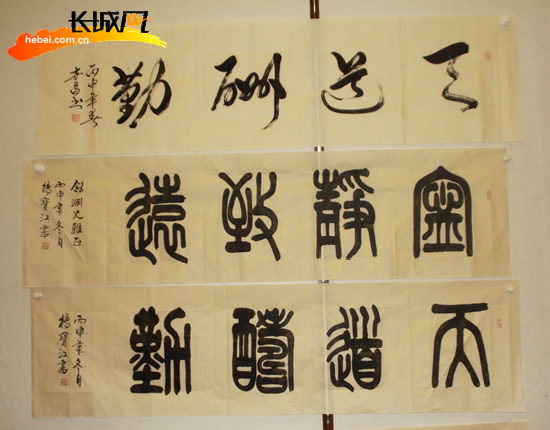 长城网
hebei.com.cn
天道酬勤
丙申年春
寧靜致遠
兄雅正
丙申年冬月
楊寶江書
天道醻勤
丙申年冬月
楊寶江書